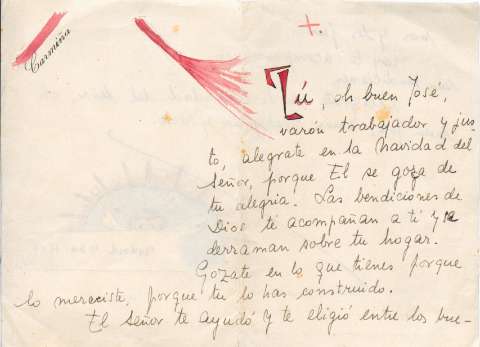 Carmiña
Tú, oh buen José,
varón trabajador y jus-
to, alegrate en la Navidad del
Señor, porque El se goza de
tu alegria. Las bendiciones de
Dios te acompañan a ti y se
derraman sobre tu hogar.
Gozate en lo que tienes porque
lo mereciste, porque tu lo has construido.
El Señor te ayudó y te eligió entre los bue-